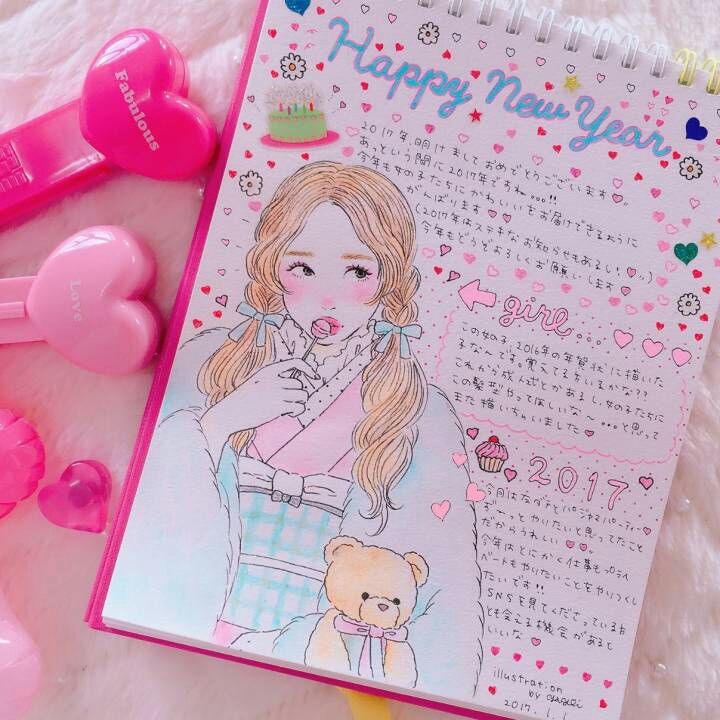 Fabulous
Love
Happy New Year
2017年明けましておめでとうございます♡。
あっという間に2017年ですね...!!
今年も女の子たちにかわいいをお届けできるように
がんばります♡♡
(2017年はステキなお知らせもあるし!
今年もどうぞよろしくお願いします♡♡
girl...
この女の子、2016年の年賀状に描いた
子なんです。覚えてる方いるかな??
これから成人式とかあるし、女の子たちに
この髪型やってほしいな〜...と思って
また描いちゃいました♡
2017
今月は友ダチとパジャマパーティー
ずーっとやりたいと思ってたこと
だからうれしい♡♡。
今年はとにかく仕事もプライ
ベートもやりたいことをやりつくし
たいです!!
SNSを見てくださっている方
とも会える機会があると
いいな♡
illustration
by
2017. 1. 1